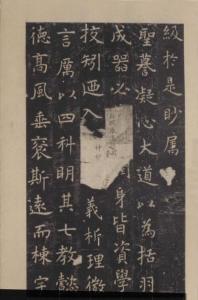 級於是眇属
聖謩凝心大道以為括羽
成器必身皆資學
校矧迺入義析理微
言厲以四科明其七教懿
德高風垂裒斯遠而棟宇